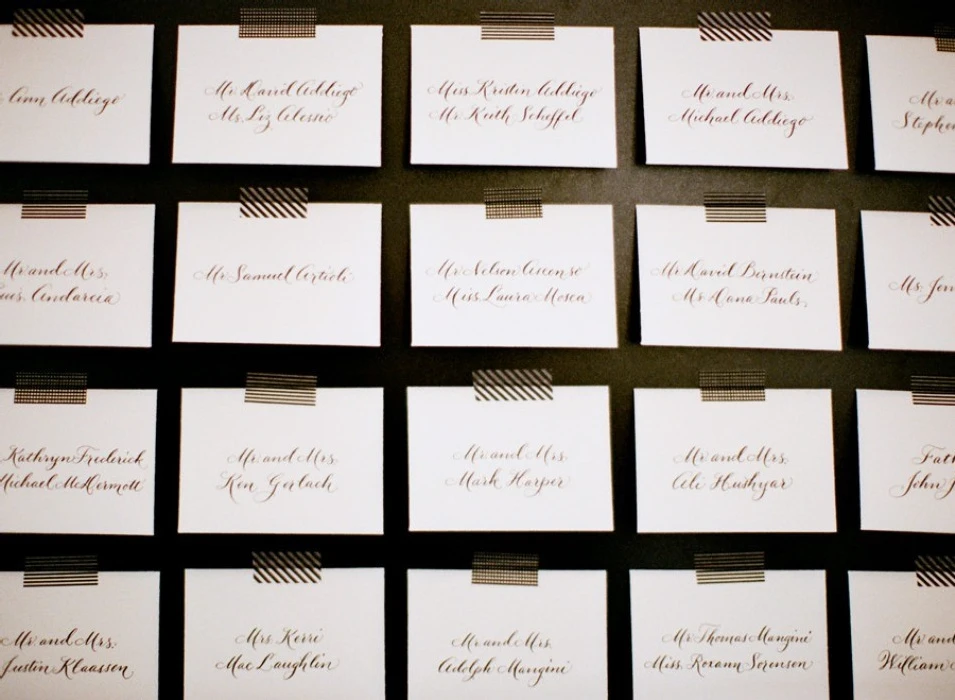 Ann Addiego
Mr. David Addiego
Ms. Liz Alessio
Miss Kristin Addiego
Mr. Keith Scheffel
Mr. and Mrs.
Michael Addiego
Mr. and Mrs.
Andarcia
Mr. Samuel Artioli
Mr. Nelson Ascenso
Miss. Laura Mosca
Mr. David Bernstein
Ms. Dana Pauls.
Ms.
Kathryn Frederick
Michael McDermott
Mr. and Mrs.
Ken Gerlach
Mr. and Mrs.
Mark Harper
Mr. and Mrs.
Ali Hushyar
John
Mr. and Mrs.
Justin Klaassen
Mrs. Kerri
MacLaughlin
Mr. and Mrs.
Adolph Mangini
Mr. Thomas Mangini
Miss. Roxann Sorenson
Mr. and
William